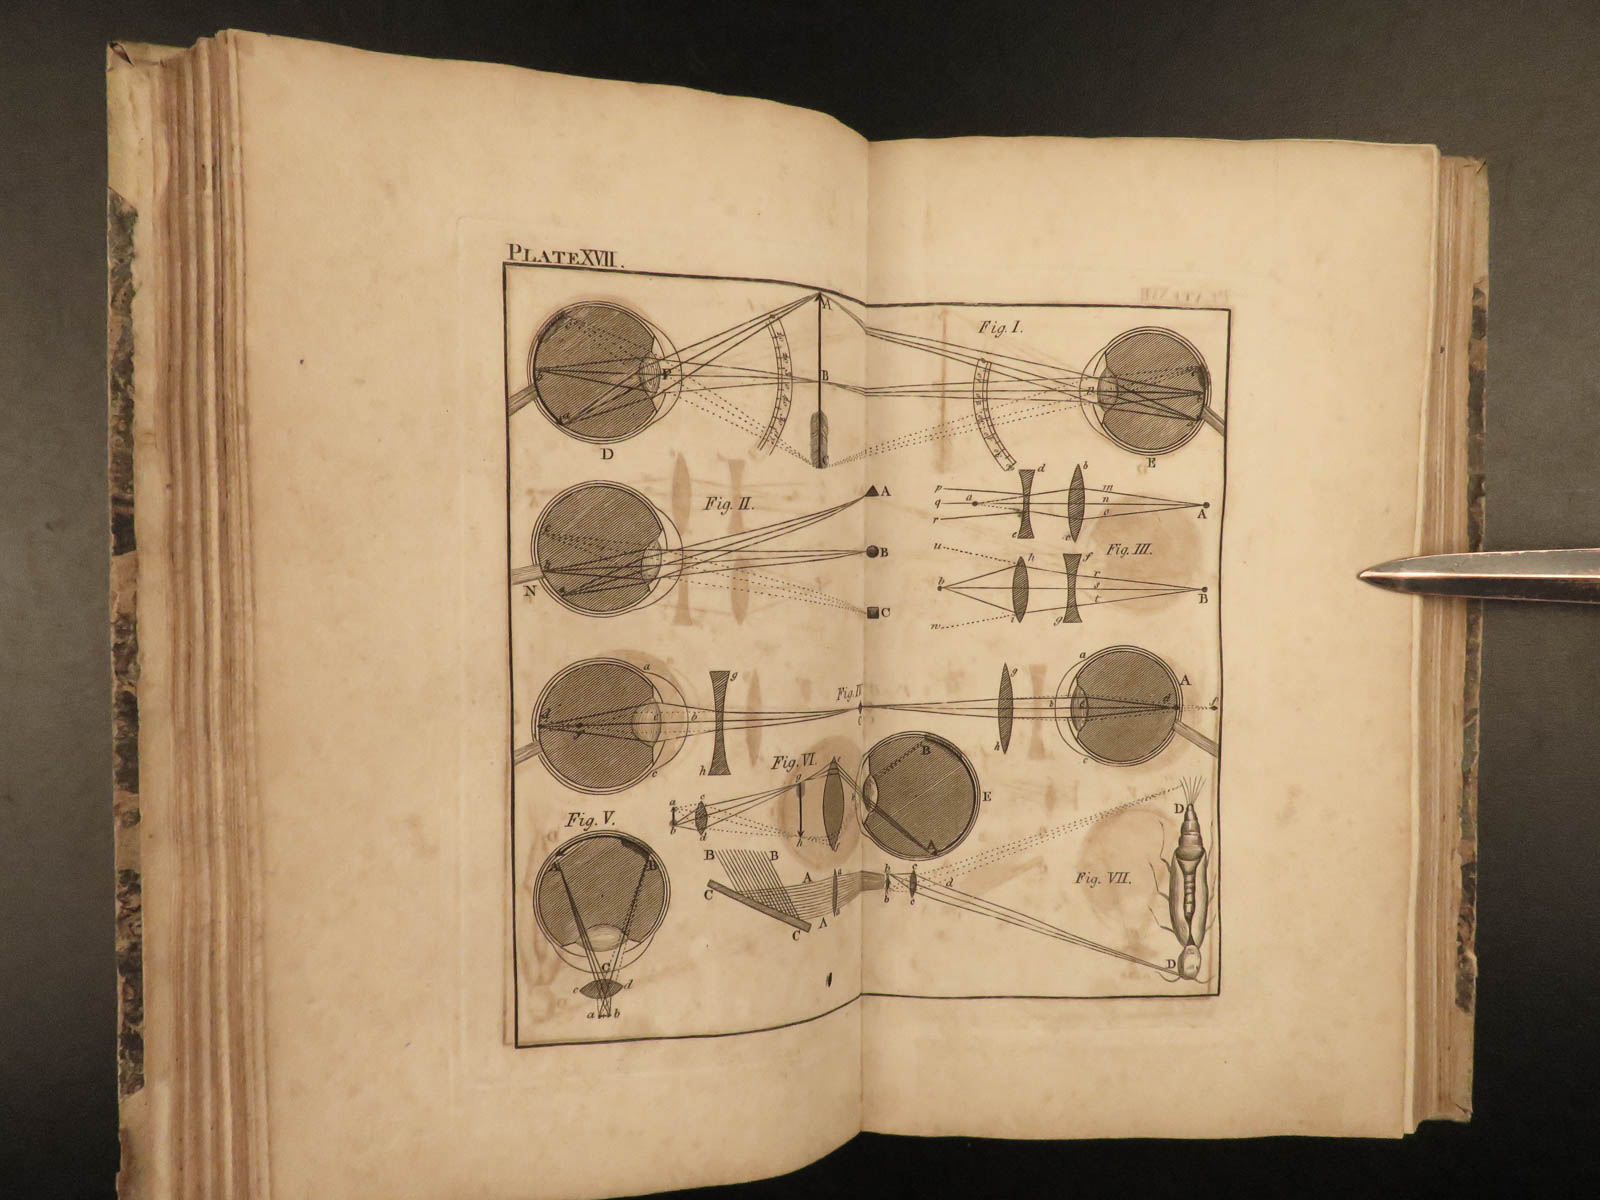 PLATE XVII.
A
Fig. I.
B
F
n
b
a
C
D
E
Fig. II.
A
B
C
N
p
q
r
a
d
b
m
n
o
A
e
c
Fig. III.
u
h
f
b
r
s
t
B
w
i
g
a
g
Fig. IV
g
a
A
d
e
b
b
d
f
c
h
h
c
Fig. VI.
B
E
A
a
c
g
b
d
h
Fig. V.
A
B
C
c
d
a
b
B
B
A
a
b
d
D
C
A
C
b
e
Fig. VII.
D